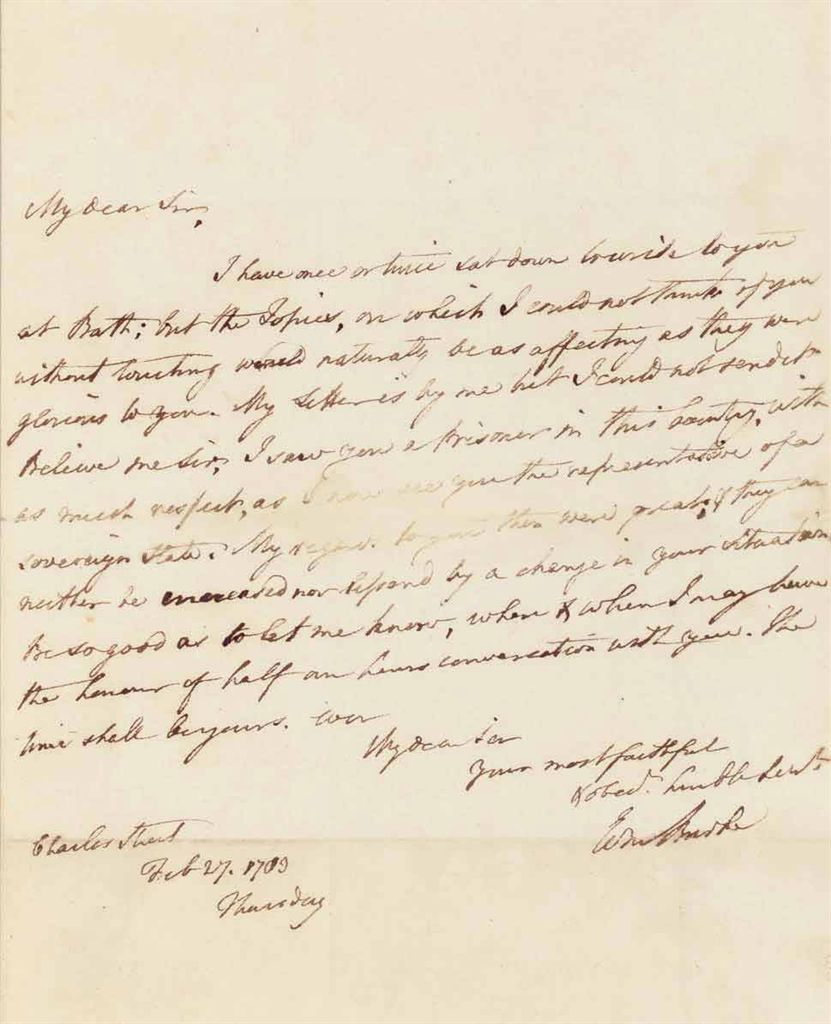 My dear Sir,
I have once or twice sat down to write to you
at Bath; but the Topics, on which I could not think of you
without touching would naturally be as affecting as they were
glorious to you. My Letter is by me but I could not send it.
Believe me Sir, I saw you a Prisoner in this Country, with
as much respect, as I now see you the representative of a
sovereign state. My regards to you then were great; & they can
neither be encreased nor lessend by a change in your situation
Be so good as to let me know, where & when I may have
the honour of half an hours conversation with you. The
time shall be yours. ever
My dear Sir
Your most faithful
& obedt. humble Servt.
Edm Burke
Charles Street
Feb 27. 1783
Thursday